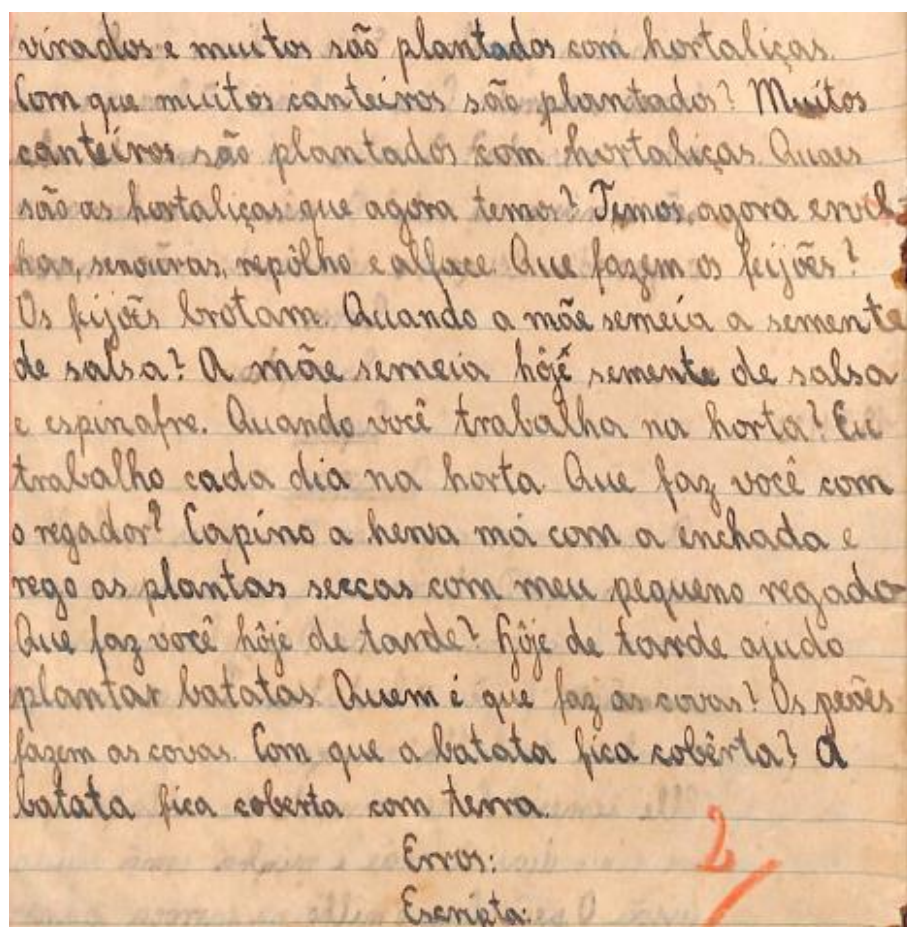 virados e muitos são plantados com hortaliças.
Com que muitos canteiros são plantados? Muitos
canteiros são plantados com hortaliças. Quaes
são as hortaliças que agora temos? Temos, agora ervil-
has, senouras, repôlho e alface. Que fazem os feijões?
Os feijões brotam. Quando a mãe semeia a semente
de salsa? A mãe semeia hôje semente de salsa
e espinafre. Quando você trabalha na horta? Eu
trabalho cada dia na horta. Que faz você com
o regador? Capino a herva má com a enchada e
rego as plantas seccas com meu pequeno regador
Que faz você hôje de tarde? Hôje de tarde ajudo
plantar batatas. Quem é que faz as covas? Os peões
fazem as covas. Com que a batata fica cobêrta? A
batata fica coberta com terra.
Erros: 2
Escripta: